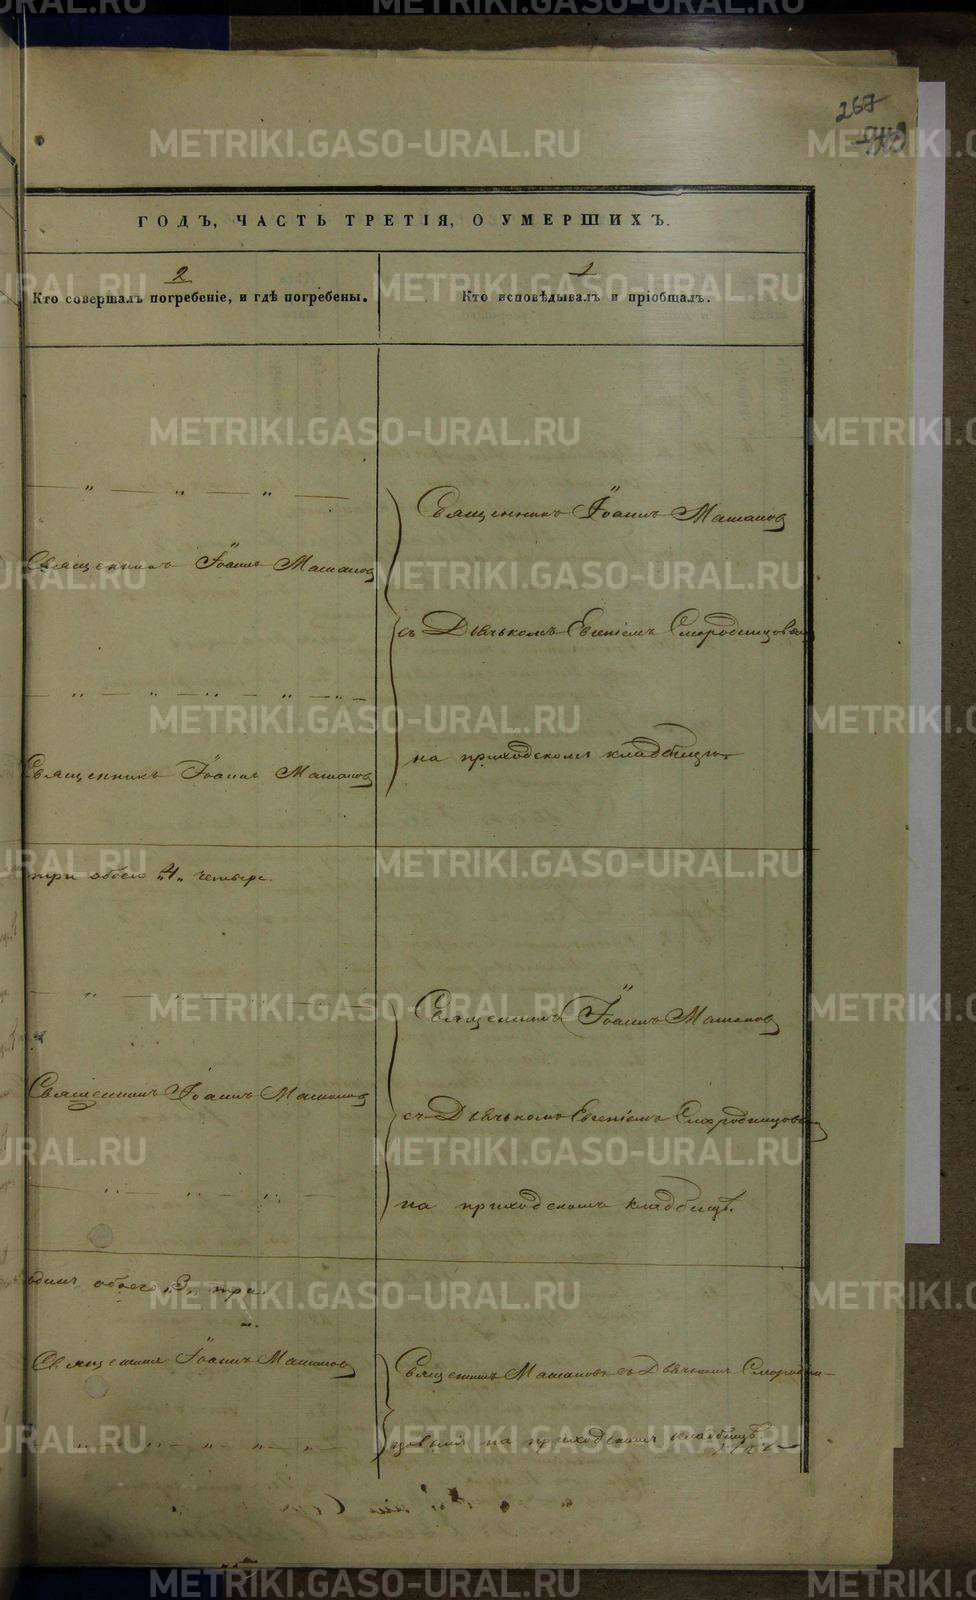 267
ГОДЪ, ЧАСТЬ ТРЕТІЯ, О УМЕРШИХЪ.
2
1
Кто совершалъ погребеніе, и гдѣ погребены.
Кто исповѣдывалъ и пріобщалъ.
— „ — „ — „ —
Священникъ Іоаннъ Машановъ
Священникъ Іоаннъ Машановъ
съ Дьячькомъ Евгеніемъ Смородинцовымъ
— „ — „ — „ — „ — „ —
на приходскомъ кладбищѣ
Священникъ Іоаннъ Машановъ
три обоего „4„ четыре.
— „ — „ — „ —
Священникъ Іоаннъ Машановъ
Священникъ Іоаннъ Машановъ
съ Дьячькомъ Евгеніемъ Смородинцовымъ
— „ — „ — „ —
на приходскомъ кладбищѣ.
одинъ обоего „3„ три.
Священникъ Іоаннъ Машановъ
Священникъ Машановъ съ Дьячькомъ Смородин-
— „ — „ — „ — „ — „
цовымъ на приходскомъ кладбищѣ.
METRIKI.GASO-URAL.RU